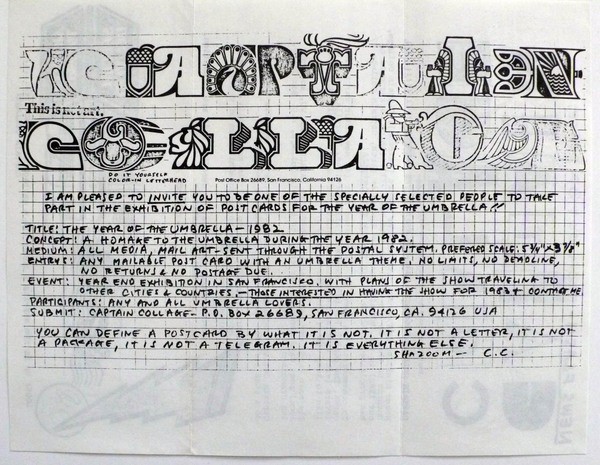 CAPTAIN
This is not art.
COLLAGE
DO IT YOURSELF
COLOR-IN LETTERHEAD
Post Office Box 26689, San Francisco, California 94126
I AM PLEASED TO INVITE YOU TO BE ONE OF THE SPECIALLY SELECTED PEOPLE TO TAKE
PART IN THE EXHIBITION OF POST CARDS FOR THE YEAR OF THE UMBRELLA!!
TITLE: THE YEAR OF THE UMBRELLA - 1982
CONCEPT: A HOMAGE TO THE UMBRELLA DURING THE YEAR 1982.
MEDIUM: ALL MEDIA, MAIL ART - SENT THROUGH THE POSTAL SYSTEM. PREFERRED SCALE: 5¾" X 3⅞"
ENTRYS: ANY MAILABLE POST CARD WITH AN UMBRELLA THEME. NO LIMITS, NO DEADLINE,
NO RETURNS & NO POSTAGE DUE.
EVENT: YEAR END EXHIBITION IN SAN FRANCISCO. WITH PLANS OF THE SHOW TRAVELING TO
OTHER CITIES & COUNTRIES. - THOSE INTERESTED IN HAVING THE SHOW FOR 1983+ CONTACT ME.
PARTICIPANTS: ANY AND ALL UMBRELLA LOVERS.
SUBMIT: CAPTAIN COLLAGE - P.O. BOX 26689, SAN FRANCISCO, CA. 94126 USA
YOU CAN DEFINE A POSTCARD BY WHAT IT IS NOT. IT IS NOT A LETTER, IT IS NOT
A PACKAGE, IT IS NOT A TELEGRAM. IT IS EVERYTHING ELSE.
SHAZOOM - C.C.